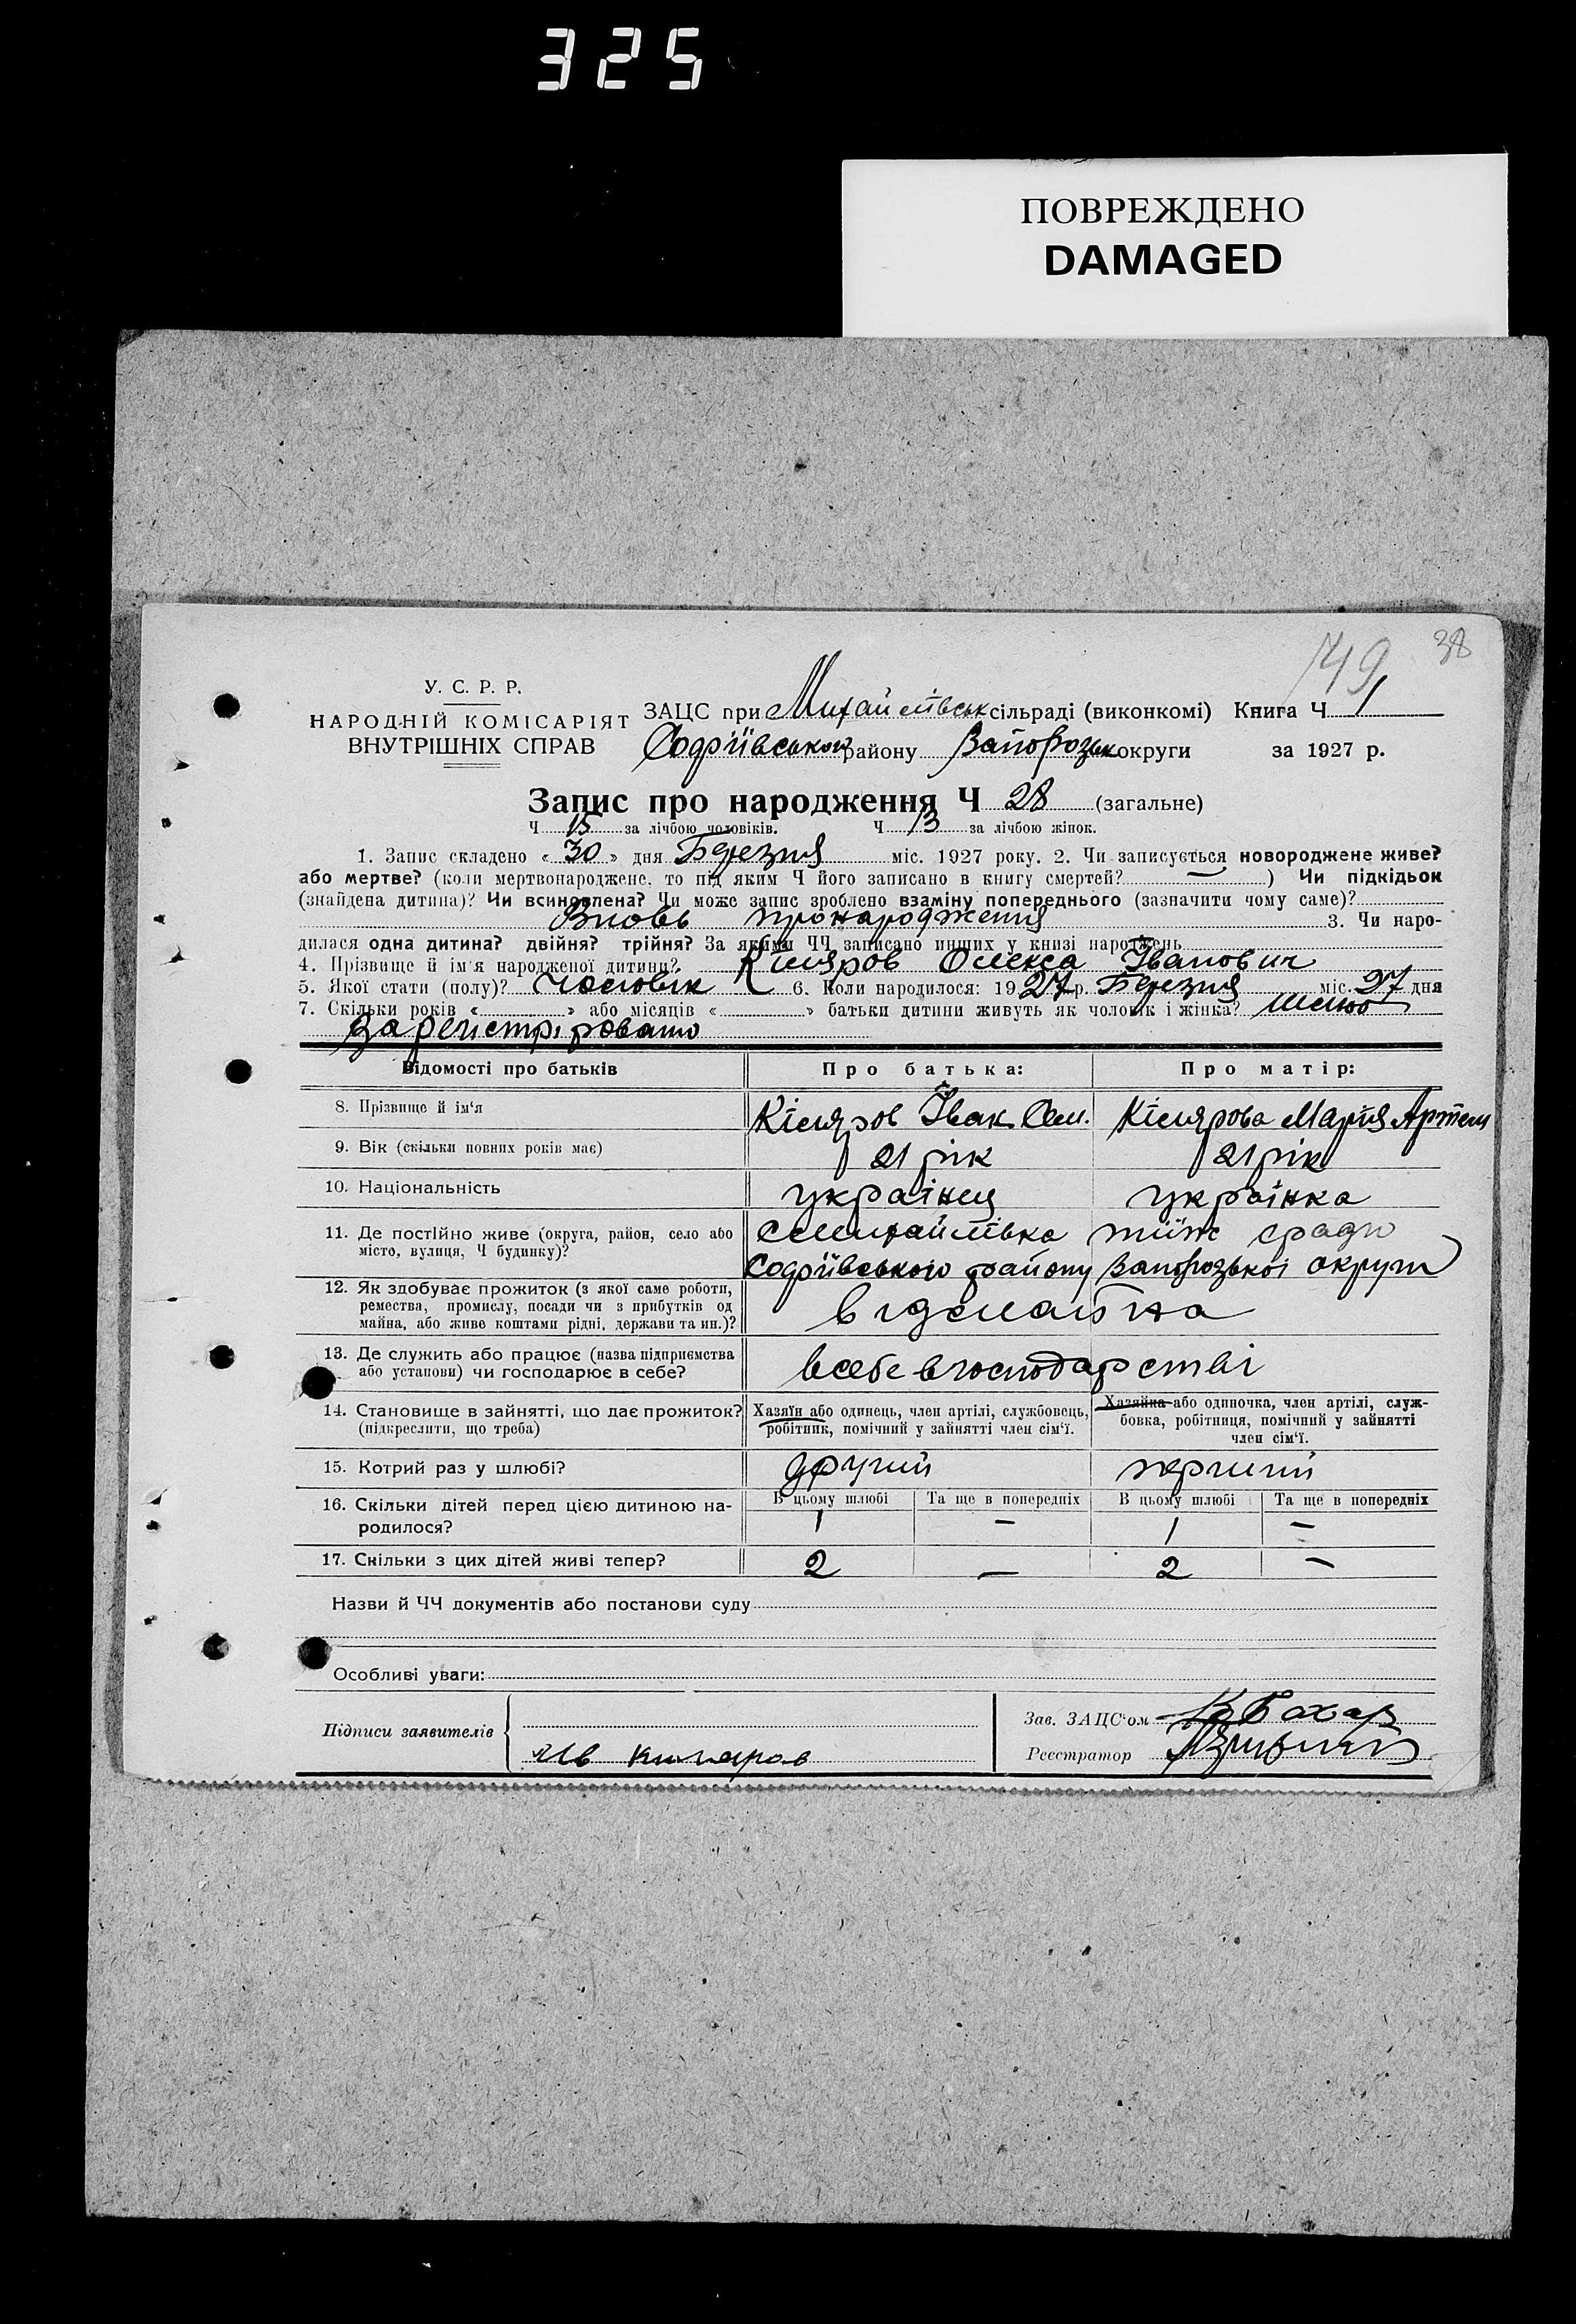 325
ПОВРЕЖДЕНО
DAMAGED
149 38
У. С. Р. Р.
НАРОДНІЙ КОМІСАРІЯТ
ВНУТРІШНІХ СПРАВ
ЗАЦС при Михайлівськ сільраді (виконкомі) Книга Ч 1
Софіївського району Запорозьк округи за 1927 р.
Запис про народження Ч 28 (загальне)
Ч 15 за лічбою чоловіків. Ч 13 за лічбою жінок.
1. Запис складено « 30 » дня Березня міс. 1927 року. 2. Чи записується новороджене живе?
або мертве? (коли мертвонароджене, то під яким Ч його записано в книгу смертей? — ) Чи підкідьок
(знайдена дитина)? Чи всиновлена? Чи може запис зроблено взаміну попереднього (зазначити чому саме)?
Вновь про народження 3. Чи наро-
дилася одна дитина? двійня? трійня? За якими ЧЧ записано инших у книзі народжень
4. Прізвище й ім'я народженої дитини? Кіляров Олекса Іванович
5. Якої стати (полу)? Чоловік 6. Коли народилося: 1927 р. Березня міс. 27 дня
7. Скільки років « » або місяців « » батьки дитини живуть як чоловік і жінка?
зарегистрировано
Відомості про батьків Про батька: Про матір:
8. Прізвище й ім'я Кіляров Іван Сем. Кілярова Мария Артем
9. Вік (скільки повних років має) 21 рік 21 рік
10. Національність украінец украінка
11. Де постійно живе (округа, район, село або
місто, вулиця, Ч будинку)?
С Михайлівка тіїж сради
Софіївського району Запорозької округи
12. Як здобуває прожиток (з якої саме роботи,
ремества, промислу, посади чи з прибутків од
майна, або живе коштами рідні, держави та ин.)?
13. Де служить або працює (назва підприємства
або установи) чи господарює в себе?
в себе в господарстві
14. Становище в зайнятті, що дає прожиток?
(підкреслити, що треба)
Хазяїн або одинець, член артілі, службовець,
робітник, помічний у зайнятті член сім'ї.
Хазяйка або одиночка, член артілі, служ-
бовка, робітниця, помічний у зайнятті
член сім'ї.
15. Котрий раз у шлюбі? другий перший
16. Скільки дітей перед цією дитиною на-
родилося?
В цьому шлюбі Та ще в попередніх В цьому шлюбі Та ще в попередніх
1 — 1 —
17. Скільки з цих дітей живі тепер? 2 — 2 —
Назви й ЧЧ документів або постанови суду
Особливі уваги:
Підписи заявителів
Ив Киляров
Зав. ЗАЦС'ом
Реєстратор